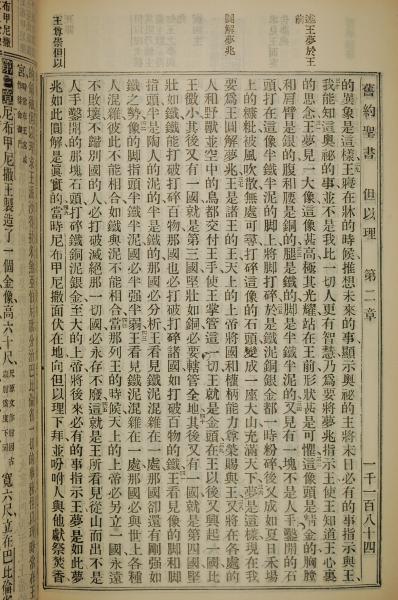 舊約聖書 但以理 第二章 一千一百八十四
述王夢於王前
圓解夢兆
王尊崇但以
的異象是這樣王寢在牀的時候推想未來的事顯示奧祕的主將末日必有的事指示與王
我能知這奧祕的事並不是我比一切人更有智慧乃爲要將夢兆指示王使王知道王心裏
的思念王夢見一大像這像甚高極其光耀站在王前形狀甚是可懼這像頭是精金的胸膛
和肩臂是銀的腹和腰是銅的腿是鐵的脚是半鐵半泥的又見有一塊不是人手鑿開的石
頭打在這像半鐵半泥的脚上將脚打碎於是鐵泥銅銀金都一時粉碎後又成如夏日禾場
上的糠粃被風吹散無處可尋打碎這像的石頭變成一座大山充滿天下夢是這樣現在我
要爲王圓解夢兆王是諸王的王天上的上帝將國和權柄能力尊榮賜與王又將在各處的
人和野獸並空中的鳥都交付王手使王掌管這一切王就是金頭在王以後又興起一國比
王微小其後又有一國就是第三國堅壯如銅必要轄管全地其後又有一國就是第四國堅
壯如鐵鐵能打破打碎百物那國也必打破打碎諸國如打破百物的鐵王看見像的脚和脚
指頭半是陶人的泥的半是鐵的那國必分析王看見鐵泥混雜在一處那國卻還有剛强如
鐵之勢像的脚指頭半鐵半泥國必半强半弱王看見鐵泥混雜在一處那國必與世上各種
人混雜彼此不能相合如鐵與泥不能相合當那列王的時候天上的上帝必另立一國永遠
不敗壞不歸別國的人必打破滅絕那一切國必永存不廢這就是王所看見從山而出不是
人手鑿開的那塊石頭打碎鐵銅泥銀金至大的上帝將後來必有的事指示王夢是如此夢
兆如此圓解是眞實的當時尼布甲尼撒面伏在地向但以理下拜並吩咐人與他獻祭焚香
尼布甲尼撒王製造了一個金像高六十尺
寬六尺立在巴比倫省